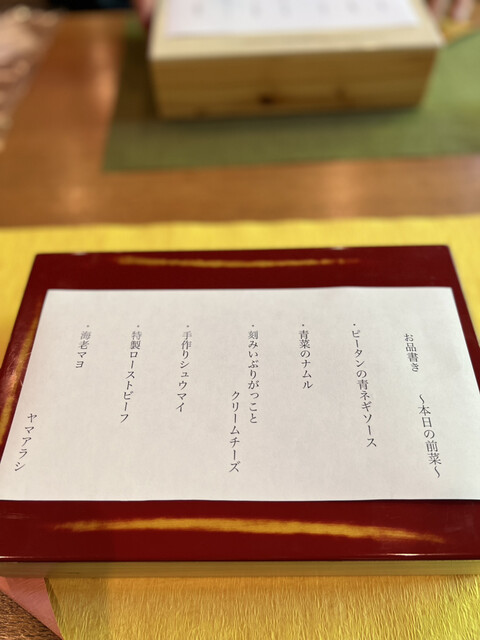 お品書き　～本日の前菜～
・ピータンの青ネギソース
・青菜のナムル
・刻みいぶりがっこと
クリームチーズ
・手作りシュウマイ
・特製ローストビーフ
・海老マヨ
ヤマアラシ